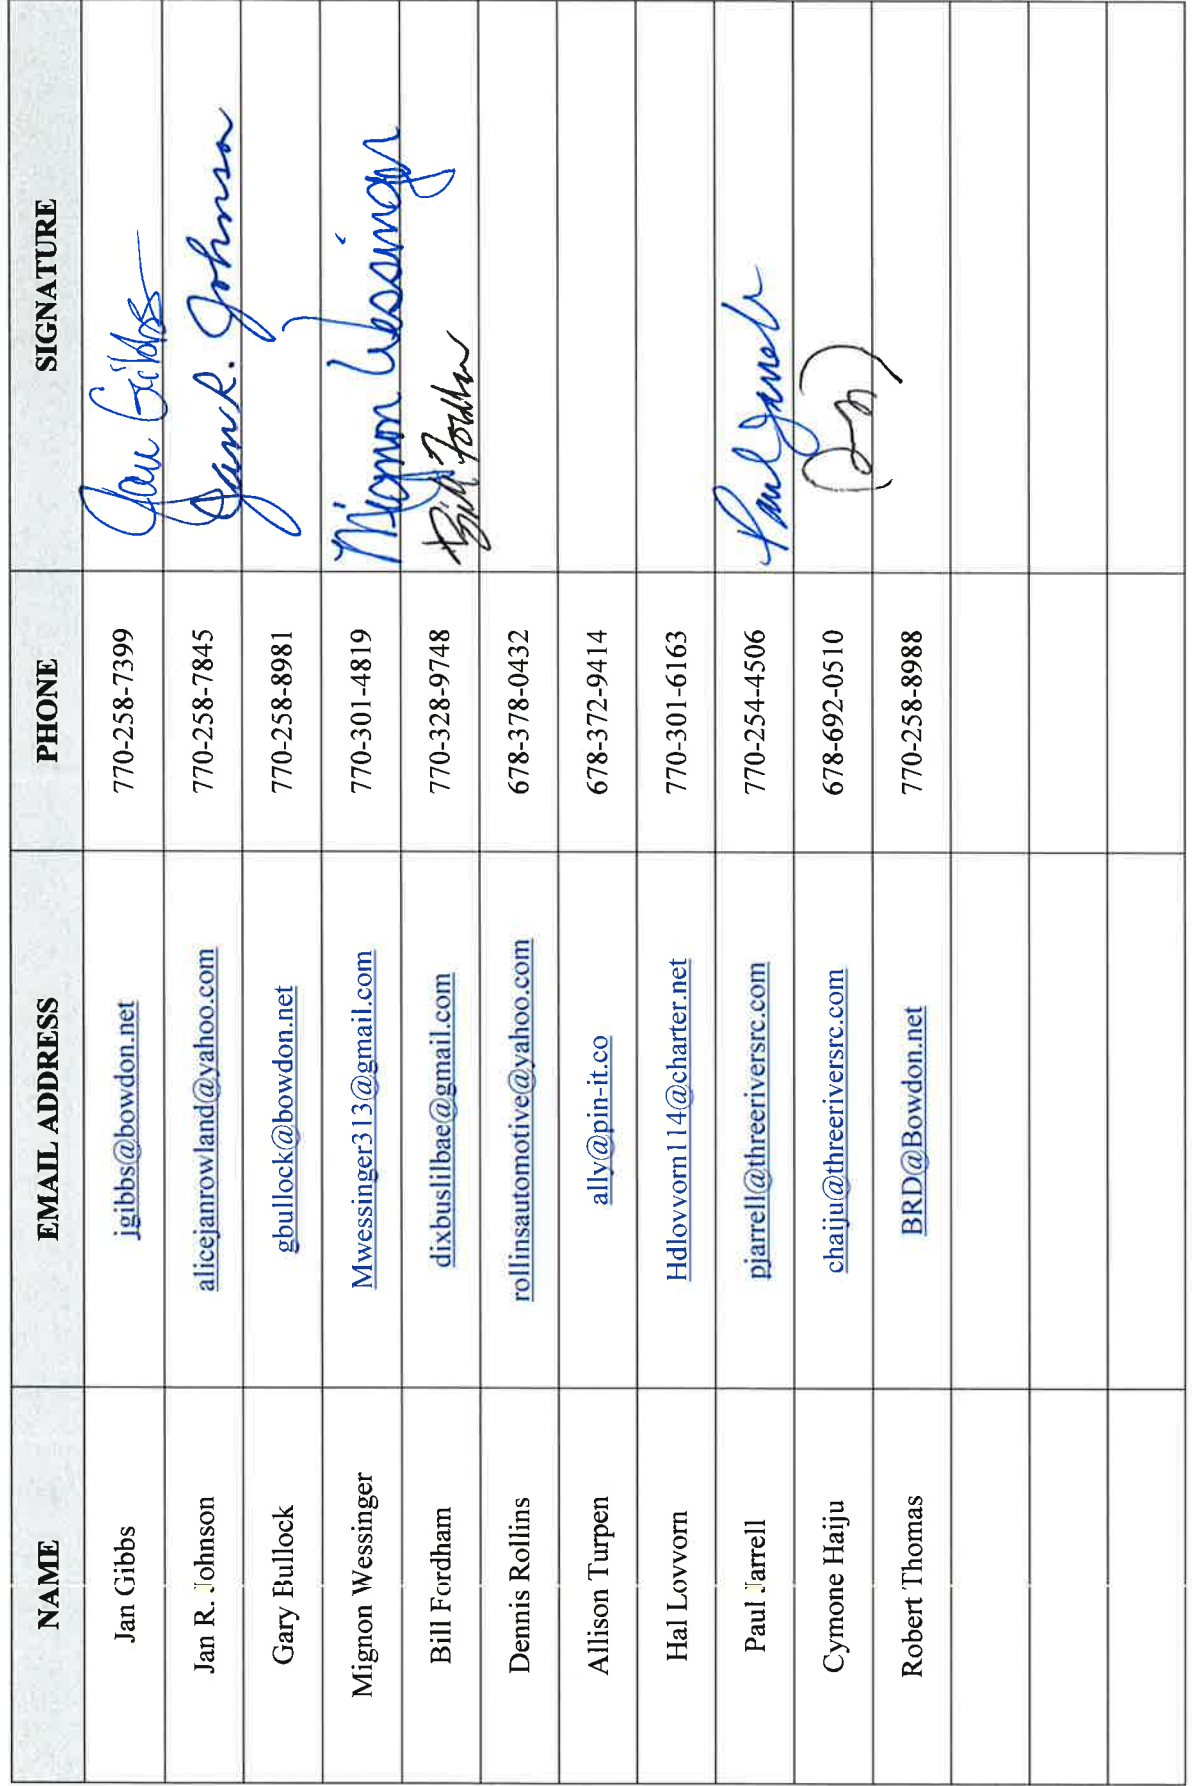 NAME EMAIL ADDRESS PHONE SIGNATURE
Jan Gibbs jgibbs@bowdon.net 770-258-7399 Jan Gibbs
Jan R. Johnson alicejanrowland@yahoo.com 770-258-7845 Jan R. Johnson
Gary Bullock gbullock@bowdon.net 770-258-8981
Mignon Wessinger Mwessinger313@gmail.com 770-301-4819 Mignon Wessinger
Bill Fordham dixbuslilbae@gmail.com 770-328-9748 Bill Fordham
Dennis Rollins rollinsautomotive@yahoo.com 678-378-0432
Allison Turpen ally@pin-it.co 678-372-9414
Hal Lovvorn Hdlovvorn114@charter.net 770-301-6163
Paul Jarrell pjarrell@threeriversrc.com 770-254-4506 Paul Jarrell
Cymone Haiju chaiju@threeriversrc.com 678-692-0510
Robert Thomas BRD@Bowdon.net 770-258-8988